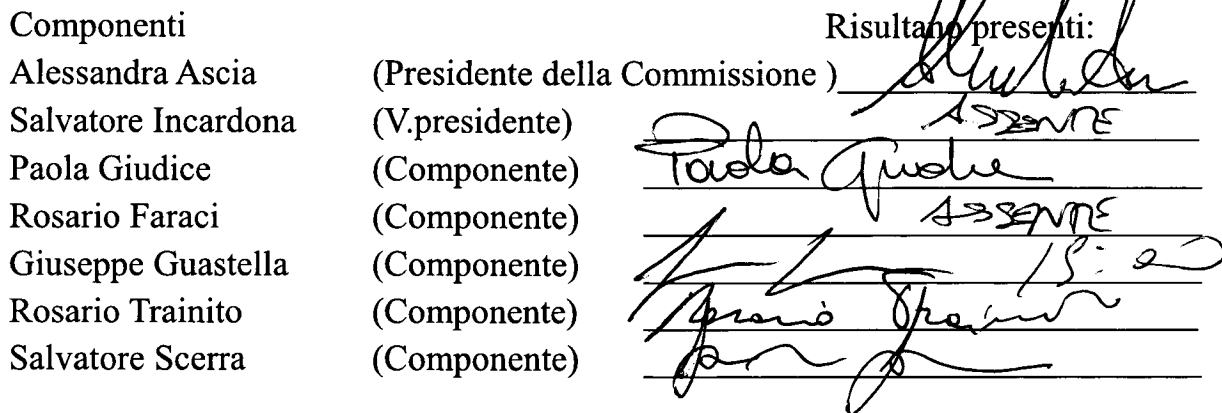 Componenti Risultano presenti:
Alessandra Ascia (Presidente della Commissione )
Salvatore Incardona (V.presidente) ASSENTE
Paola Giudice (Componente) Paola Giudice
Rosario Faraci (Componente) ASSENTE
Giuseppe Guastella (Componente)
Rosario Trainito (Componente) Rosario Trainito
Salvatore Scerra (Componente)